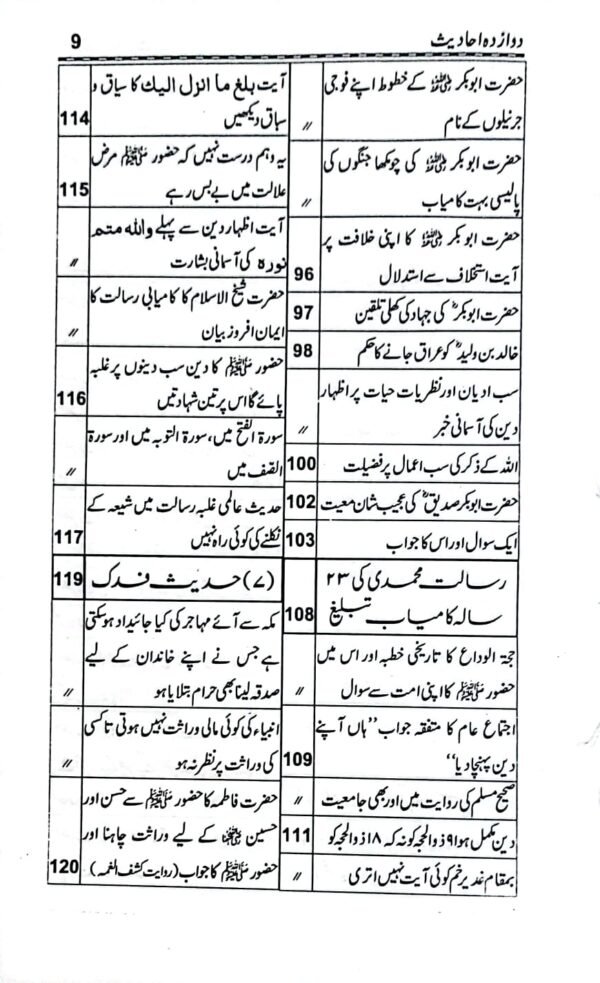 دوازدہ احادیث 9
حضرت ابوبکر ؓ کے خطوط اپنے فوجی
جرنیلوں کے نام 〃
حضرت ابوبکر ؓ کی چومکھا جنگوں کی
پالیسی بہت کامیاب 〃
حضرت ابوبکر ؓ کا اپنی خلافت پر
آیت استخلاف سے استدلال 96
حضرت ابوبکرؓ کی جہاد کی کھلی تلقین 97
خالد بن ولیدؓ کو عراق جانے کا حکم 98
سب ادیان اور نظریات حیات پر اظہار
دین کی آسمانی خبر 〃
اللہ کے ذکر کی سب اعمال پر فضیلت 100
حضرت ابوبکر صدیقؓ کی عجیب شان معیت 102
ایک سوال اور اس کا جواب 103
رسالت محمدی کی ۲۳
سالہ کامیاب تبلیغ 108
حجۃ الوداع کا تاریخی خطبہ اور اس میں
حضور ﷺ کا اپنی امت سے سوال 〃
اجتماع عام کا متفقہ جواب "ہاں آپنے
دین پہنچا دیا" 109
صحیح مسلم کی روایت میں اور بھی جامعیت 〃
دین مکمل ہوا ۹ ذوالحجہ کو نہ کہ ۱۸ ذوالحجہ کو 111
بمقام غدیر خم کوئی آیت نہیں اتری 〃
آیت بلغ ما انزل الیك کا سیاق و
سباق دیکھیں 114
یہ وہم درست نہیں کہ حضور ﷺ مرض
علالت میں بے بس رہے 115
آیت اظہار دین سے پہلے واللہ متم
نورہ کی آسمانی بشارت 〃
حضرت شیخ الاسلام کا کامیابی رسالت کا
ایمان افروز بیان 〃
حضور ﷺ کا دین سب دینوں پر غلبہ
پائے گا اس پر تین شہادتیں 116
سورۃ الفتح میں، سورۃ التوبہ میں اور سورۃ
الصف میں 〃
حدیث عالمی غلبہ رسالت میں شیعہ کے
نکلنے کی کوئی راہ نہیں 117
(۷) حدیث فدک 119
مکہ سے آئے مہاجر کی کیا جائیداد ہو سکتی
ہے جس نے اپنے خاندان کے لیے
صدقہ لینا بھی حرام بتلایا ہو 〃
انبیاء کی کوئی مالی وراثت نہیں ہوتی تا کسی
کی وراثت پر نظر نہ ہو 〃
حضرت فاطمہ کا حضور ﷺ سے حسن اور
حسین ؓ کے لیے وراثت چاہنا اور
حضور ﷺ کا جواب (روایت کشف الغمہ) 120